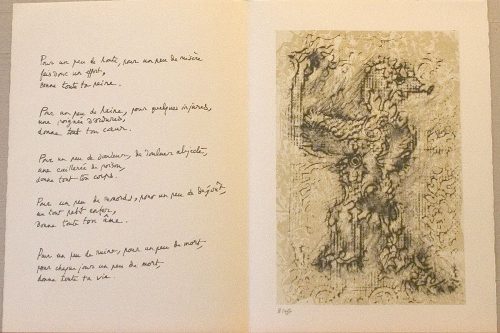 Pour un peu de honte, pour un peu de misère
fais donc un effort,
donne toute ta haine.
Pour un peu de haine, pour quelques injures,
une poignée d'ordures,
donne tout ton cœur.
Pour un peu de douleur, de douleurs abjectes,
une cuillerée de poison,
donne tout ton corps.
Pour un peu de remords, pour un peu de dégoût,
un tout petit enfer,
donne toute ton âme.
Pour un peu de ruine, pour un peu de mort,
pour chaque jour un peu de mort,
donne toute ta vie.